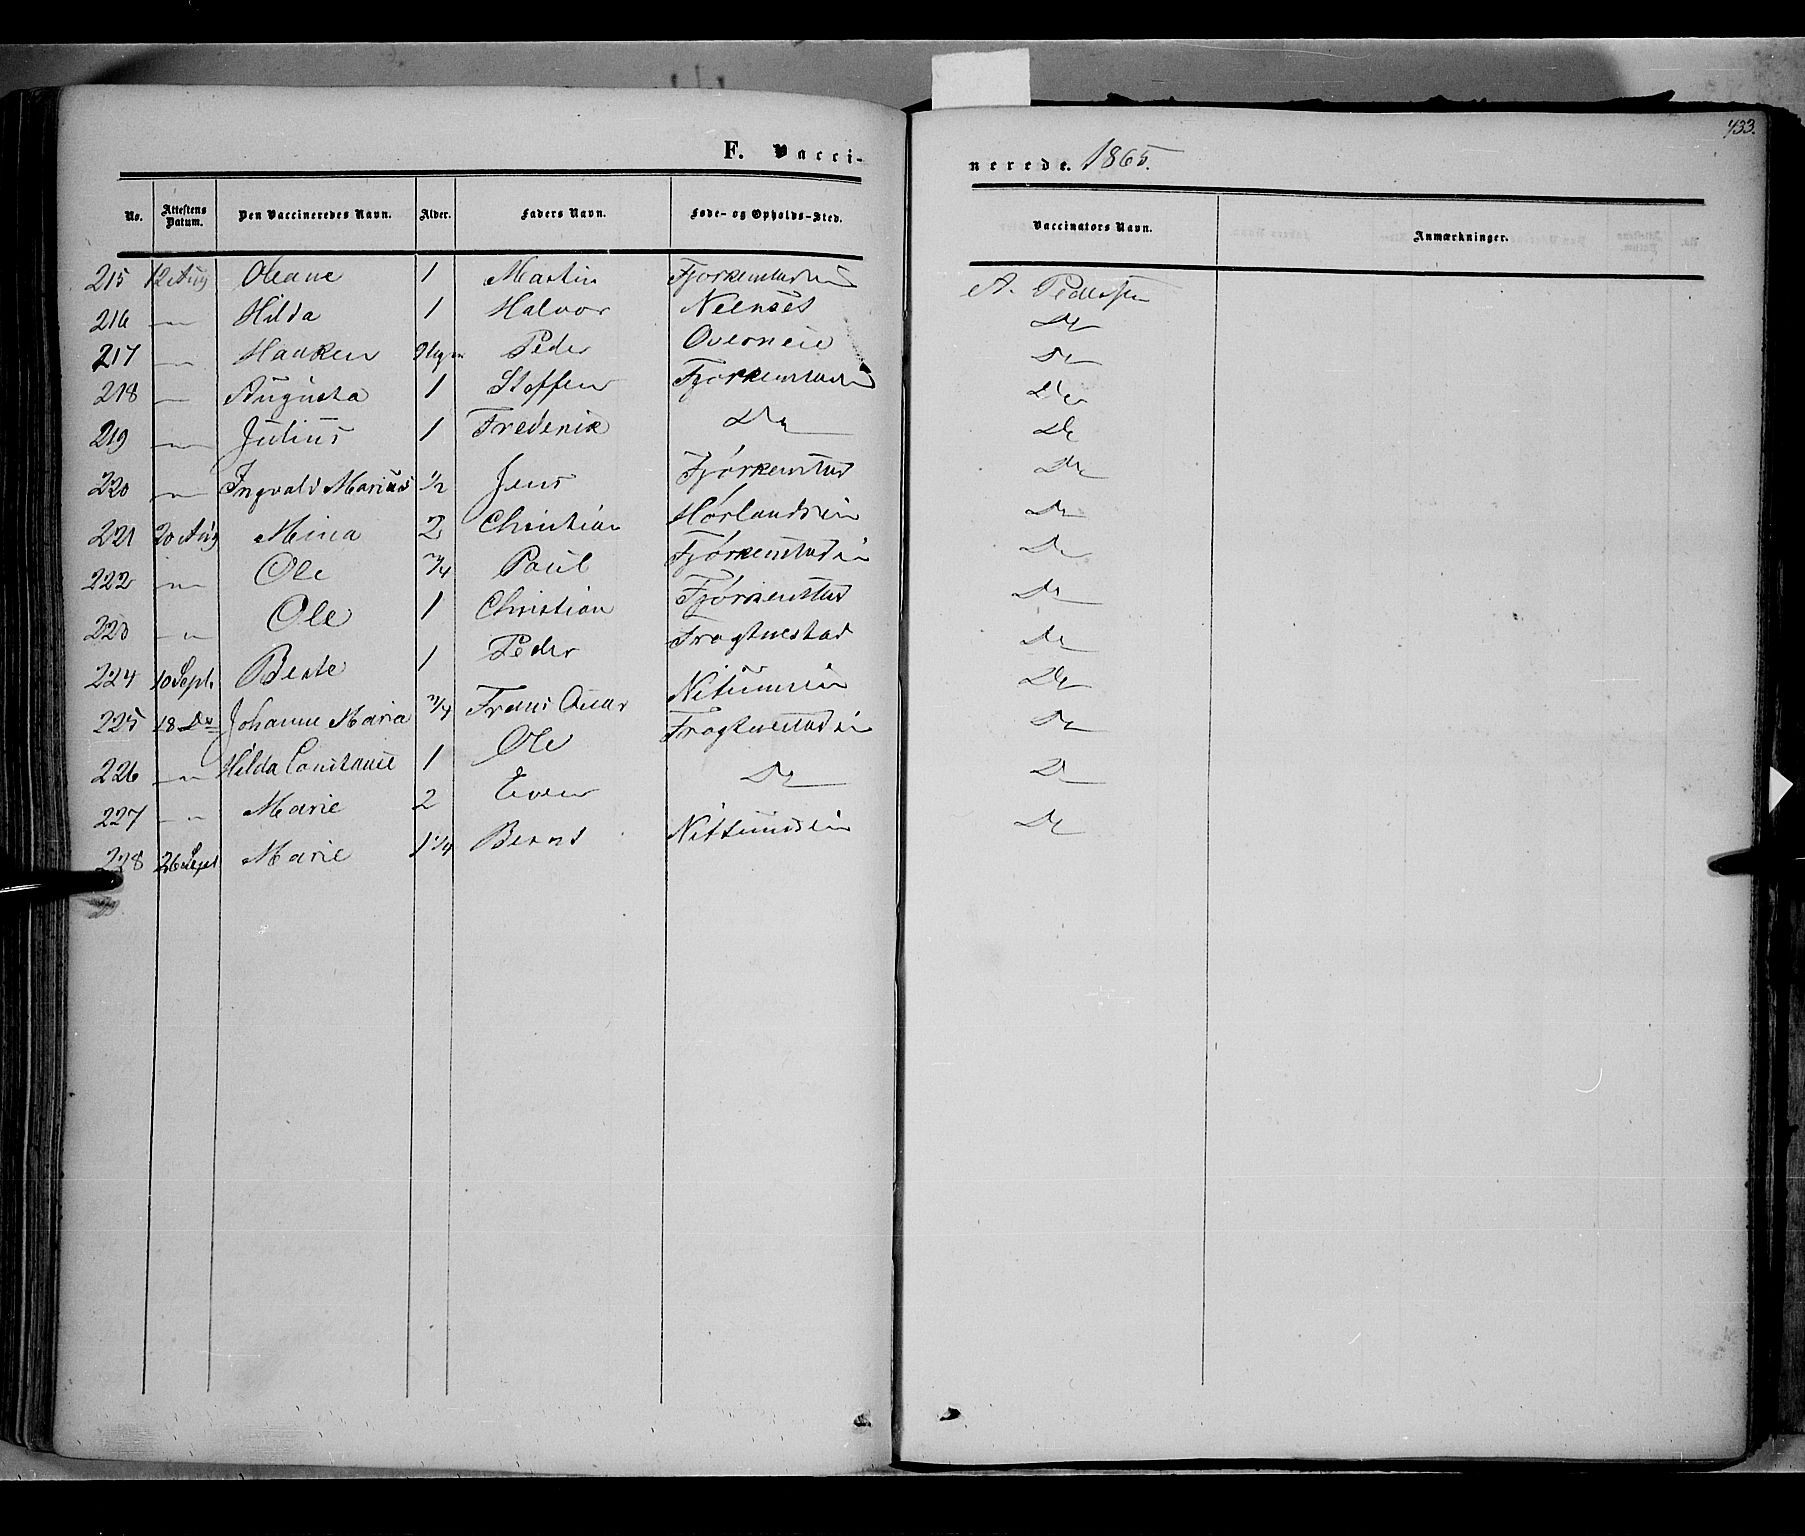 433.
F. Vaccinerede. 1865.
No. Attestens Datum. Den Vaccineredes Navn. Alder. Faders Navn. Føde- og Opholds-Sted. Vaccinators Navn. Anmærkninger.
215 12 Aug Oleane 1 Martin Fjørkenstadei A. Pedersen
216 — Hilda 1 Halvor Nelnset Do
217 — Haaken Peder Overneie Do
218 — Augusta 1 Steffen Fjørkenstadei Do
219 — Julius 1 Frederik Do Do
220 — Ingvald Marius 1/2 Jens Fjørkenstad Do
221 20 Aug Mina 2 Christian Hørlandseie Do
222 — Ole 3/4 Paul Fjørkenstadeie Do
223 — Ole 1 Christian Fjørkenstad Do
224 10 Sept. Beate 1 Peder Frogtnestad Do
225 18 Do Johanne Maria 3/4 Frans Oscar Do
226 — Hilda Constance 1 Ole Frogtnestadeie Do
227 — Marie 2 Even Do Do
228 26 Sept Marie 1 1/4 Bernt Nittundseie Do